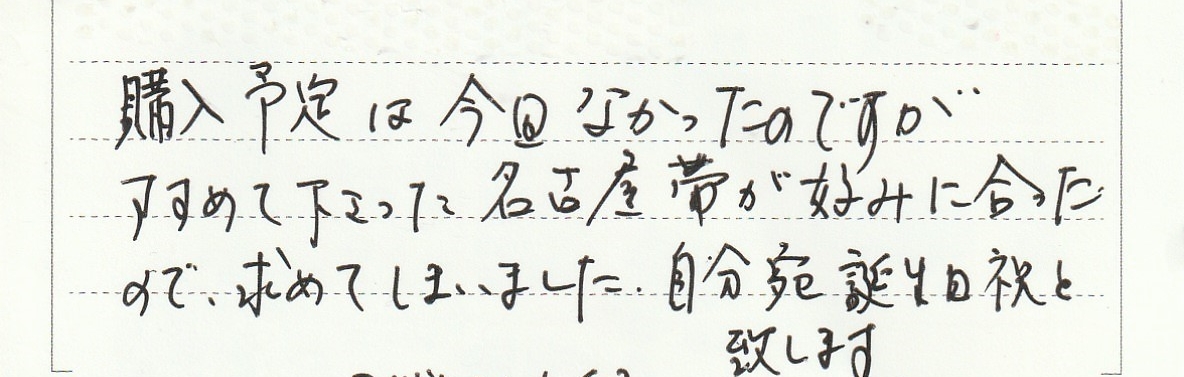 購入予定は今回なかったのですが
すすめて下さった名古屋帯が好みに合った
ので、求めてしまいました。自分宛誕生日祝と
致します